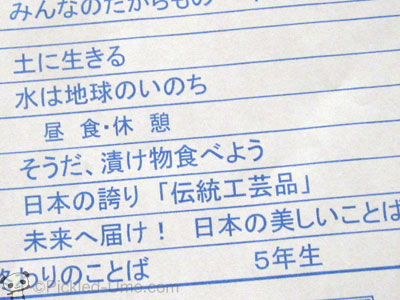 みんなのたからもの
土に生きる
水は地球のいのち
昼食・休憩
そうだ、漬け物食べよう
日本の誇り「伝統工芸品」
未来へ届け! 日本の美しいことば
終わりのことば 5年生
©Pickled-Ume.com